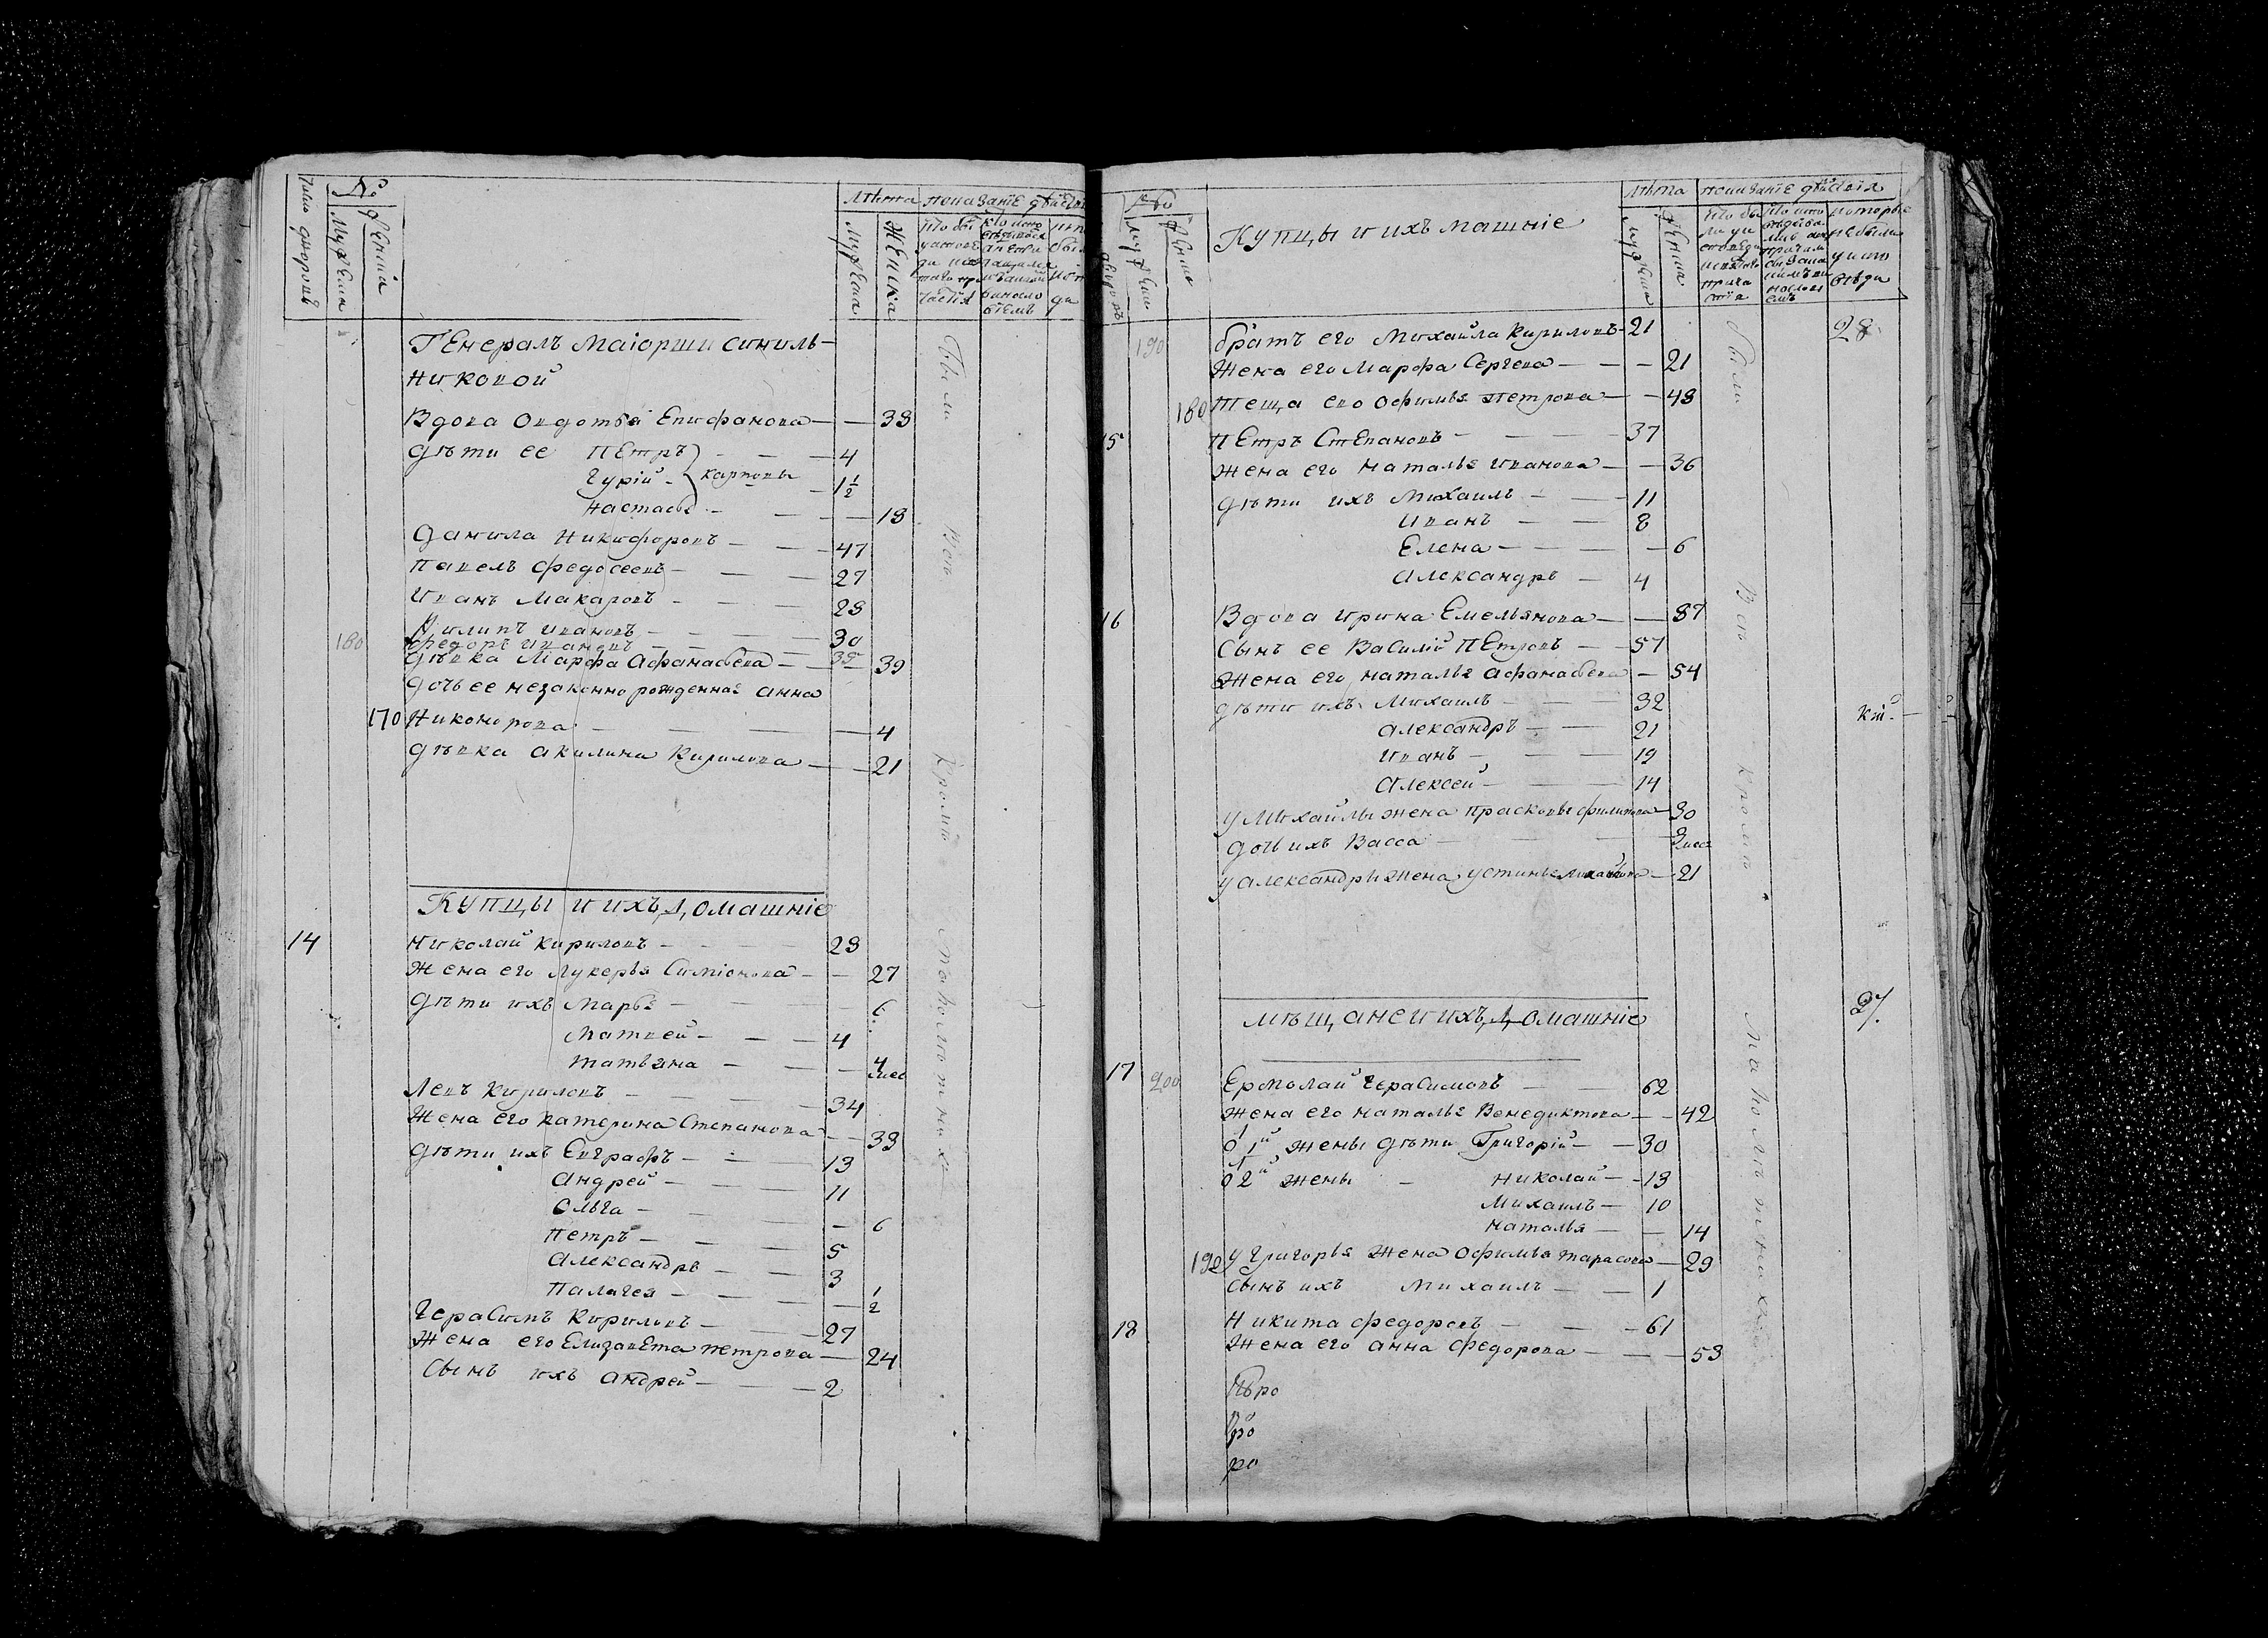 №
Число дворовъ
Мужеска
Женска
Лѣта
показанiе дѣйствiя
Мужеска
Женска
Генералъ Маiорши Синиль-
никовой
Вдова Овдотья Епифанова — — 33
дѣти ее Петръ — — 4
Гурiй - Карповы - 1 1/2
Настасья - — — 13
Данила Никифоровъ - — — 47
Павелъ Федосеевъ - — — 27
Иванъ Макаровъ - — — 23
Филипъ Ивановъ - — — 30
180 Федоръ Ивановъ — — 35
дѣвка Марфа Афанасьева — — 39
дочь ее незаконнорожденная Анна
170 Никонорова - — — — 4
дѣвка Акилина Кирилова — — 21
Были
Всѣ
Кромѣ
малолѣтнихъ
Купцы и ихъ Домашнiе
14 Николай Кириловъ - 23
Жена его Лукерья Симiонова - — 27
дѣти ихъ Марья - 6
Матвей - — — 4
Татьяна — — — 4 мес
Левъ Кириловъ - 34
Жена его Катерина Степанова — — 33
дѣти ихъ Евграфъ - — 13
Андрей - — — 11
Ольга - — — 6
Петръ - — — 5
Александръ - — 3
Палагея - — — 1/2
Герасимъ Кириловъ - — 27
Жена его Елизавета Петрова — 24
Сынъ ихъ Андрей - — — 2
№
мужеска
женска
Купцы и ихъ машнiе
лѣта
показанiе дѣйствiя
мужеска
женска
190 братъ его Михайла Кириловъ - 21
28
Жена его Марфа Сергева — — — 21
180 Теща ево Офимья Петрова — — 48
15 Петръ Степановъ - — — 37
Жена его Наталья Иванова — — 36
дѣти ихъ Михаилъ - — - 11
Иванъ - — 8
Елена — — — — 6
Александръ — 4
16 Вдова Ирина Емельянова — — 87
Сынъ ее Василiй Петровъ - — 57
Жена его Наталья Афанасьева — 54
дѣти ихъ Михаилъ - — 32
Александръ - — 21
Иванъ - — 19
Алексей - — 14
у Михайлы жена Прасковья Филипова — 30
дочь ихъ Васса —
у Александры жена Устинья Михайлова — 21
были
Всѣ
Кромѣ
малолѣтнихъ
Мѣщане и ихъ Домашнiе
27.
17 200 Ермолай Герасимовъ - 62
Жена его Наталья Венедиктова — — 42
о 1й жены дѣти Григорiй — — 30
о 2й жены - Николай — - 13
Михаилъ — 10
Наталья — — 14
190 у Григорья жена Офимья Тарасова — 29
Сынъ ихъ Михаилъ — — 1
18 Никита Федоровъ - — - 61
Жена его Анна Федорова — — 53
ро
ро